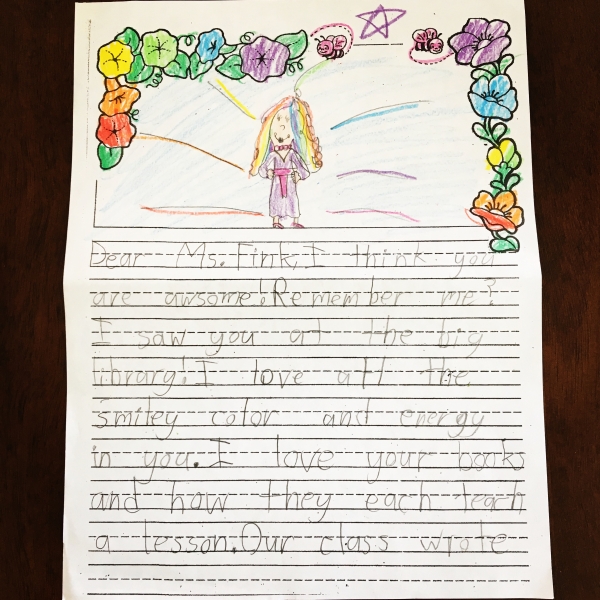 Dear Ms. Fink, I think you
are awsome! Remember me?
I saw you at the big
library! I love all the
smiley color and energy
in you. I love your books
and how they each teach
a lesson. Our class wrote